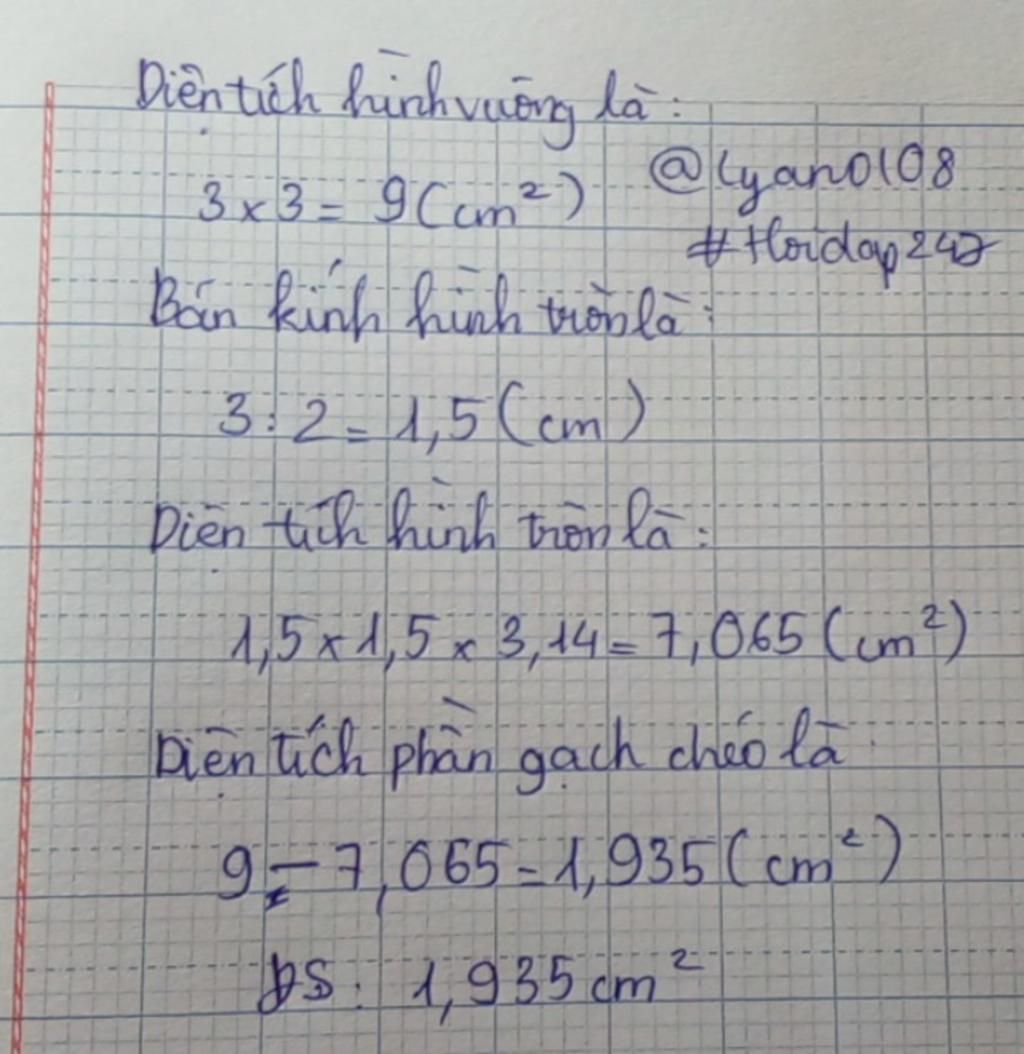 Diện tích hình vuông là:
3 x 3 = 9 (cm²)
@lyan0108
#Hoidap247
Bán kính hình tròn là:
3 : 2 = 1,5 (cm)
Diện tích hình tròn là:
1,5 x 1,5 x 3,14 = 7,065 (cm²)
Diện tích phần gạch chéo là
9 - 7,065 = 1,935 (cm²)
ĐS: 1,935 cm²